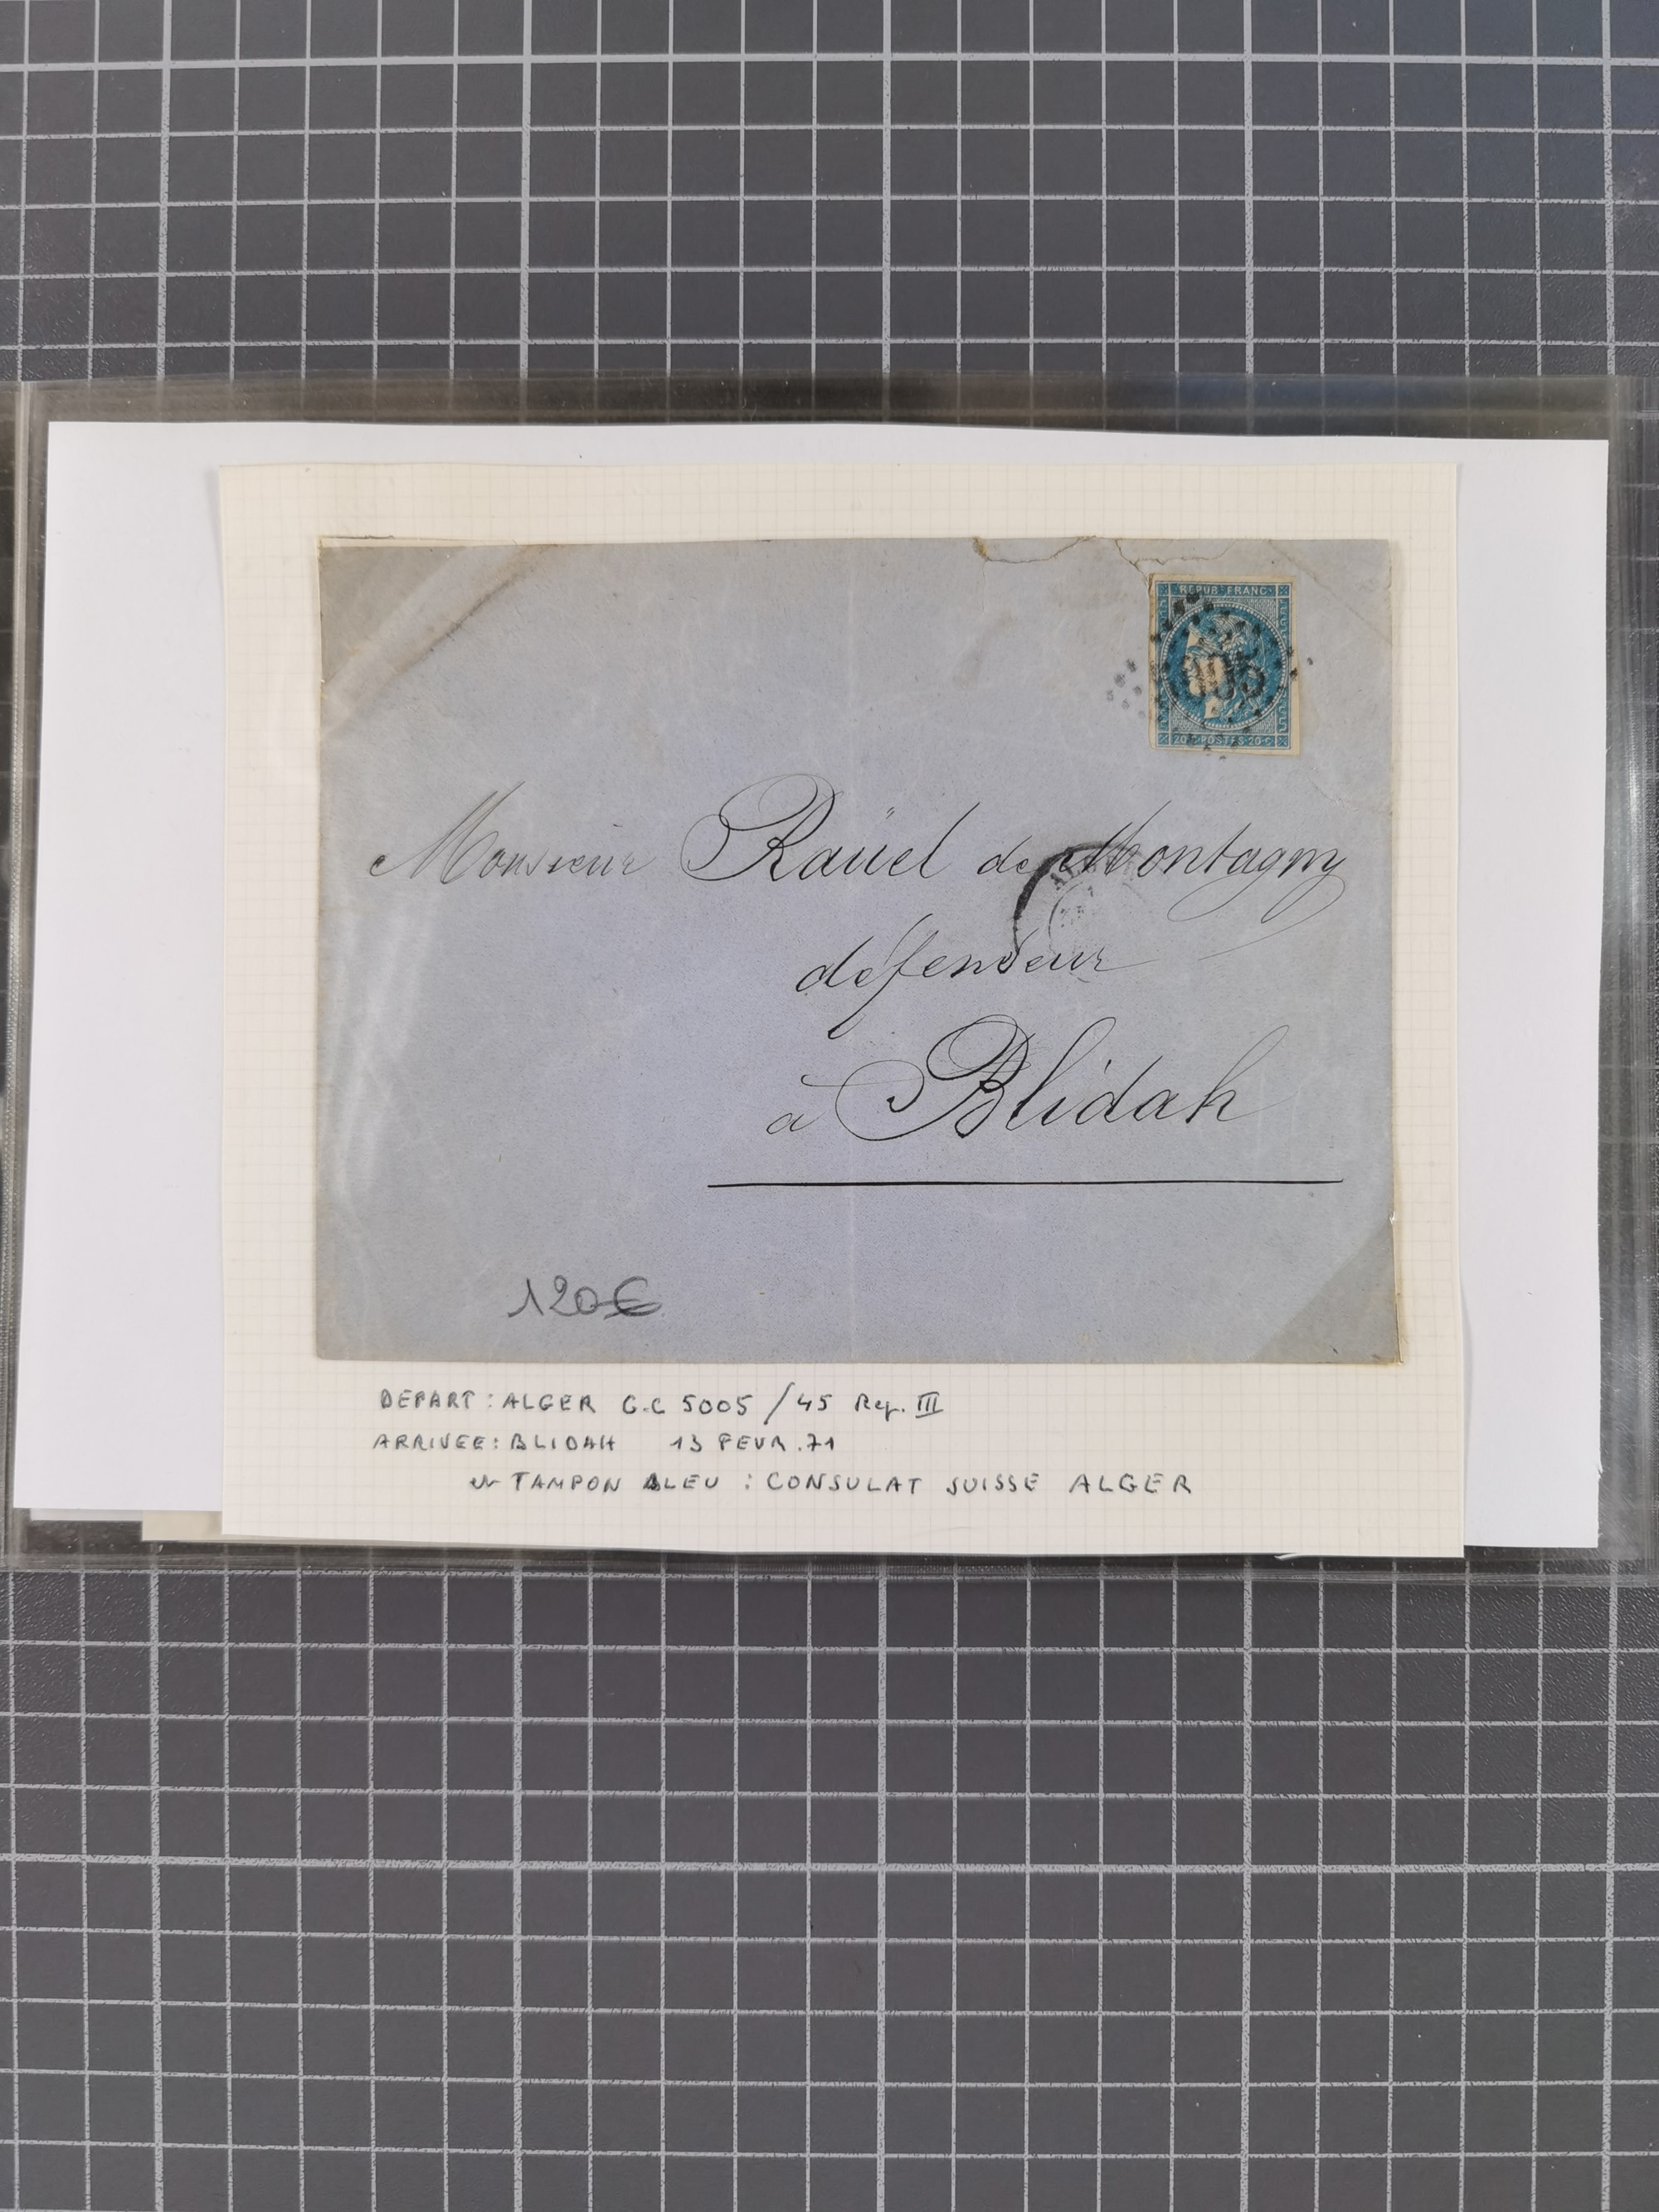 REPUB FRANC
5005
20 c POSTES 20 c
Monsieur Raüel de Montagny
défenseur
à Blidah
120€
DEPART : ALGER G.C 5005 / 45 Rep. III
ARRIVEE : BLIDAH 13 FEVR. 71
TAMPON BLEU : CONSULAT SUISSE ALGER